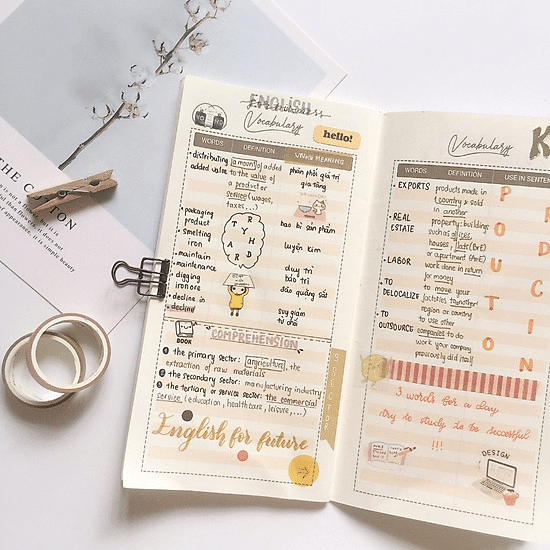 THE COTTON
it is simple beauty
ENGLISH
For business
Vocabulary
hello!
WORDS DEFINITION VNese MEANING
• distributing a mount of added phân phối giá trị
added value to the value of gia tăng
a product or
service (wages,
taxes,...)
• packaging bao bì sản phẩm
product
• smelting luyện kim
iron
TRY
HARD
• maintain duy trì
• maintenance bảo trì
• digging đào quặng sắt
iron ore
• decline in suy giảm
• decline từ chối
BOOK
COMPREHENSION
① the primary sector: argriculture, the
extraction of raw materials
② the secondary sector: manufacturing industry
③ the tertiary or service sector: the commercial
service (education, healthcare, leisure,...)
3 SECTOR
English for future
Vocabulary
K
WORDS DEFINITION USE IN SENTEN
• EXPORTS products made in
1 country & sold
in another
• REAL property: buildings
ESTATE such as offices,
houses, flats (BrE)
or apartment (AmE)
• LABOR work done in return
for money
• TO to move your
DELOCALIZE factories to another
region or country
• TO to use other
OUTSOURCE companies to do
work your company
previously did itself
PRODUCTION
3 words for a day
try to study to be successful
!!!
DESIGN